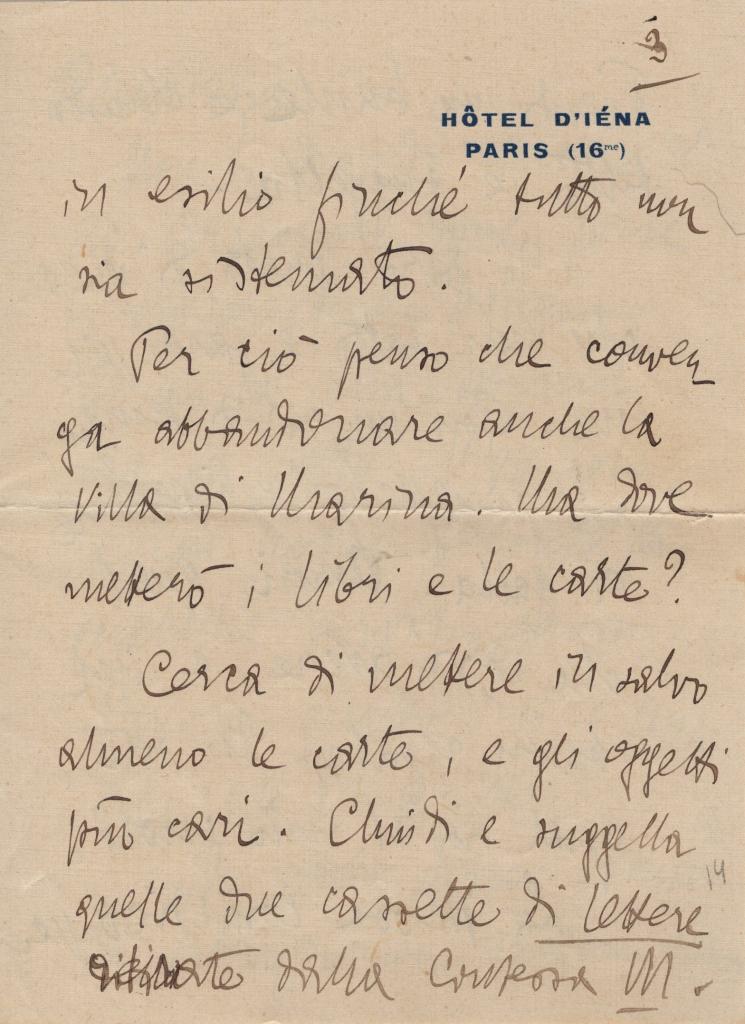 3
HÔTEL D'IÉNA
PARIS (16me)
in esilio finché tutto non
sia sistemato.
Per ciò penso che conven
ga abbandonare anche la
villa di Marina. Ma dove
metterò i libri e le carte?
Cerca di mettere in salvo
almeno le carte, e gli oggetti
più cari. Chiudi e suggella
quelle due cassette di lettere
dalla Contessa M.
14